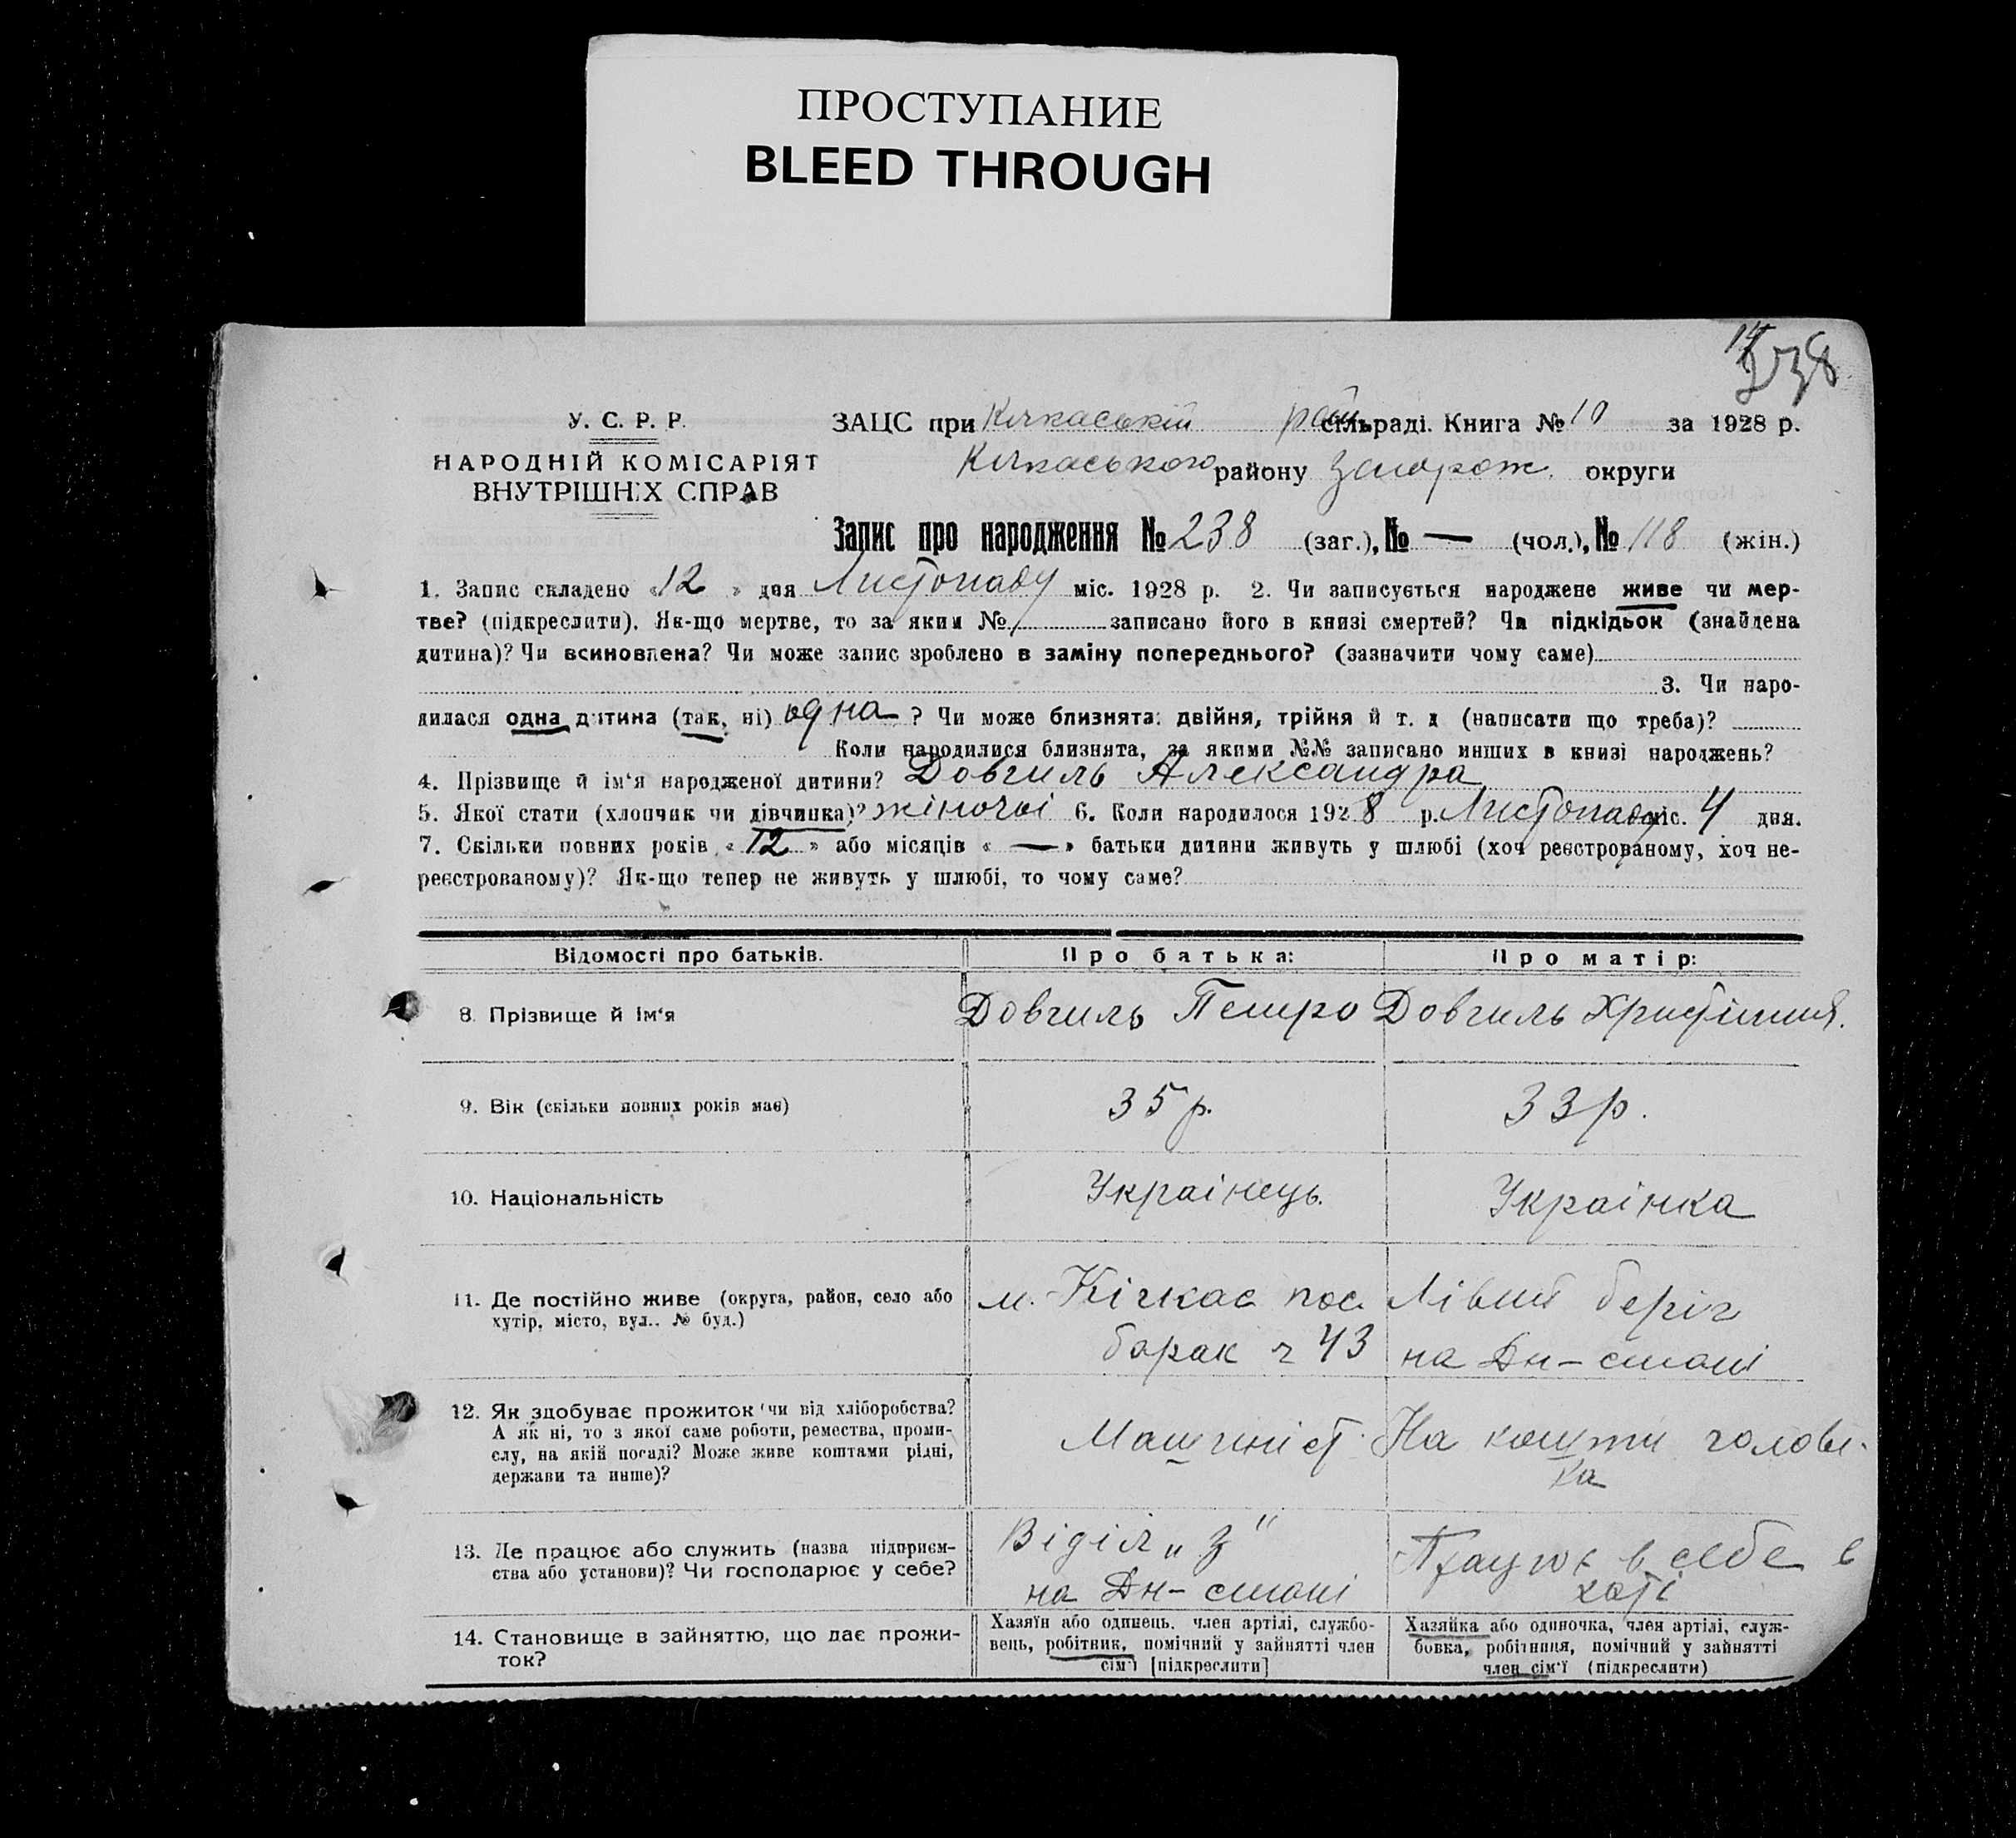 ПРОСТУПАНИЕ
BLEED THROUGH
238
У. С. Р. Р.
НАРОДНІЙ КОМІСАРІЯТ
ВНУТРІШНІХ СПРАВ
ЗАЦС при Кічкаській рай сільраді. Книга № 10 за 1928 р.
Кічкаського району Запорож. округи
Запис про народження № 238 (заг.), № — (чол.), № 118 (жін.)
1. Запис складено «12» дня Листопаду міс. 1928 р. 2. Чи записується народжене живе чи мер-
тве? (підкреслити). Як-що мертве, то за яким № записано його в книзі смертей? Чи підкідьок (знайдена
дитина)? Чи всиновлена? Чи може запис зроблено в заміну попереднього? (зазначити чому саме)
3. Чи наро-
дилася одна дитина (так, ні) одна ? Чи може близнята: двійня, трійня й т. д (написати що треба)?
Коли народилися близнята, за якими №№ записано инших в книзі народжень?
4. Прізвище й ім'я народженої дитини? Довгиль Александра
5. Якої стати (хлопчик чи дівчинка)? жіночої 6. Коли народилося 1928 р. Листопаду міс. 4 дня.
7. Скільки повних років «12» або місяців « — » батьки дитини живуть у шлюбі (хоч реєстрованому, хоч не-
реєстрованому)? Як-що тепер не живуть у шлюбі, то чому саме?
Відомості про батьків.
Про батька:
Про матір:
8. Прізвище й ім'я
Довгиль Петро
Довгиль Христиния.
9. Вік (скільки повних років має)
35 р.
33 р.
10. Національність
Українець.
Українка
11. Де постійно живе (округа, район, село або
хутір, місто, вул., № буд.)
м. Кічкас пос.
барак ч 43
Лівий беріг
на Дн-стані
12. Як здобуває прожиток чи від хліборобства?
А як ні, то з якої саме роботи, ремества, проми-
слу, на якій посаді? Може живе коштами рідні,
держави та инше)?
Машиніст.
На кошти чолові-
ка
13. Де працює або служить (назва підприєм-
ства або установи)? Чи господарює у себе?
Віділ „З"
на Дн-стані
Працює в себе в
хаті
14. Становище в зайняттю, що дає прожи-
ток?
Хазяїн або одинець. член артілі, службо-
вець, робітник, помічний у зайнятті член
сім'ї [підкреслити]
Хазяйка або одиночка, член артілі, служ-
бовка, робітниця, помічний у зайнятті
член сім'ї (підкреслити)